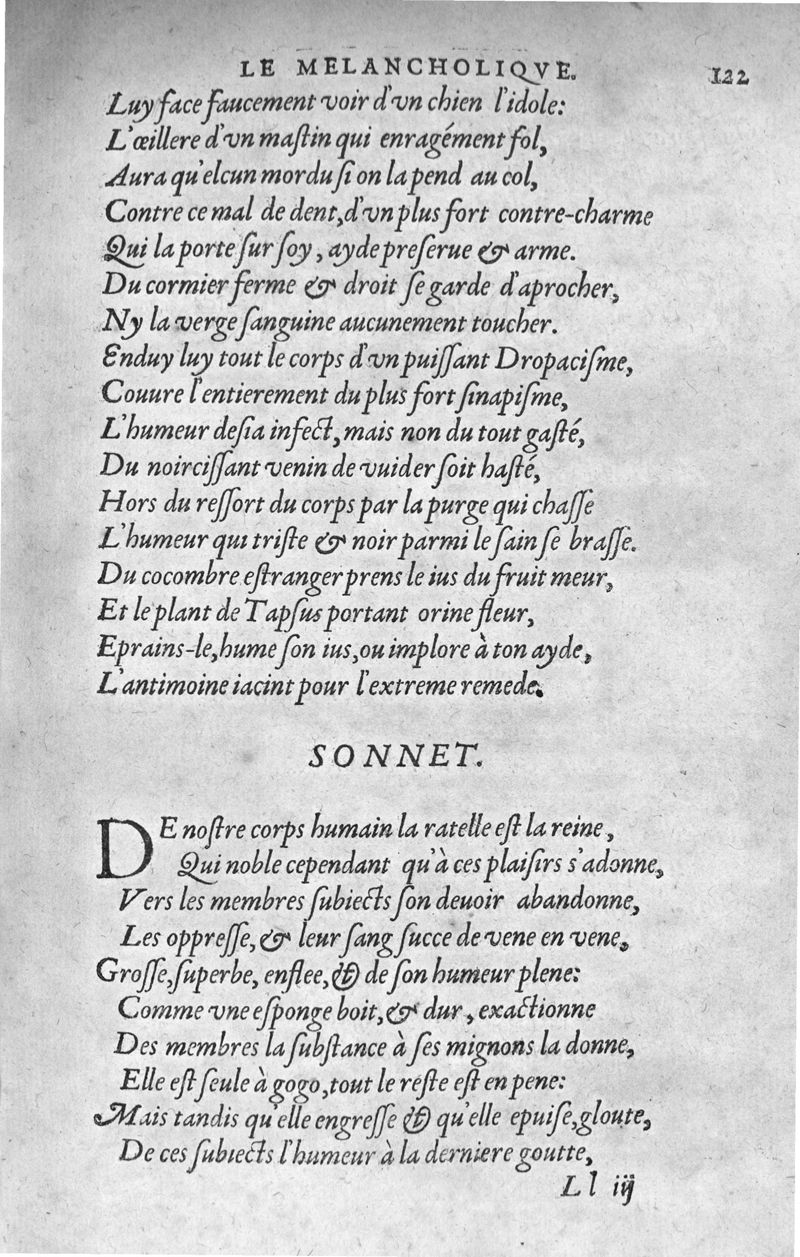 LE MELANCHOLIQVE. 122
Luy face faucement voir d'vn chien l'idole:
L'œillere d'vn maſtin qui enragément fol,
Aura qu'elcun mordu ſi on la pend au col,
Contre ce mal de dent, d'vn plus fort contre-charme
Qui la porte ſur ſoy, ayde preſerue & arme.
Du cormier ferme & droit ſe garde d'aprocher,
Ny la verge ſanguine aucunement toucher.
Enduy luy tout le corps d'vn puiſſant Dropaciſme,
Couure l'entierement du plus fort ſinapiſme,
L'humeur deſia infect, mais non du tout gaſté,
Du noirciſſant venin de vuider ſoit haſté,
Hors du reſſort du corps par la purge qui chaſſe
L'humeur qui triſte & noir parmi le ſain ſe braſſe.
Du cocombre eſtranger prens le ius du fruit meur,
Et le plant de Tapſus portant orine fleur,
Eprains-le, hume ſon ius, ou implore à ton ayde,
L'antimoine iacint pour l'extreme remede.
SONNET.
DE noſtre corps humain la ratelle eſt la reine,
Qui noble cependant qu'à ces plaiſirs s'adonne,
Vers les membres ſubiects ſon deuoir abandonne,
Les oppreſſe, & leur ſang ſucce de vene en vene,
Groſſe, ſuperbe, enflee, & de ſon humeur plene:
Comme vne eſponge boit, & dur, exactionne
Des membres la ſubſtance à ſes mignons la donne,
Elle eſt ſeule à gogo, tout le reſte eſt en pene:
Mais tandis qu'elle engreſſe & qu'elle epuiſe, gloute,
De ces ſubiects l'humeur à la derniere goutte,
Ll iij